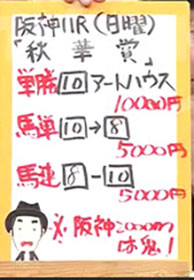 阪神11R(日曜)
「秋華賞」
単勝 10 アートハウス
10000円
馬単 10→8
5000円
馬連 8-10
5000円
※阪神2000m
は鬼!